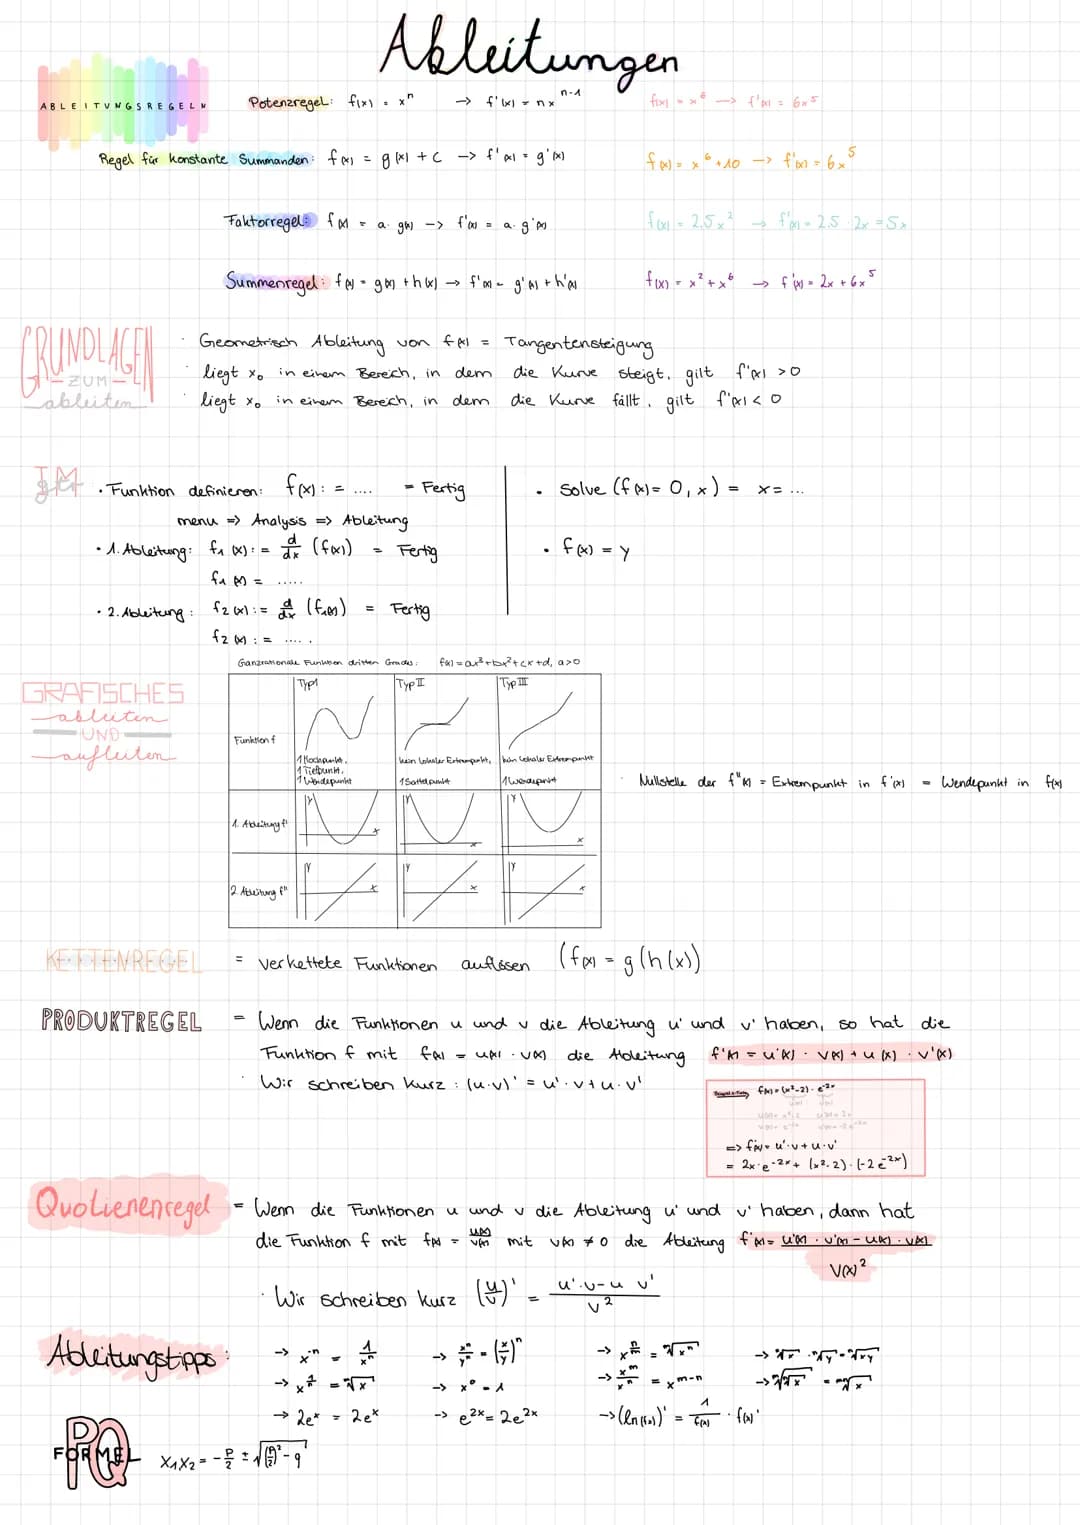 Ableitungen
ABLEITUNGSREGELN
Potenzregel: f(x) = x^n → f'(x) = nx^(n-1)
f(x) = x^6 → f'(x) = 6x^5
Regel für konstante Summanden: f(x) = g(x) + c → f'(x) = g'(x)
f(x) = x^6 + 10 → f'(x) = 6x^5
Faktorregel: f(x) = a · g(x) → f'(x) = a · g'(x)
f(x) = 2,5x^2 → f'(x) = 2,5 · 2x = 5x
Summenregel: f(x) = g(x) + h(x) → f'(x) = g'(x) + h'(x)
f(x) = x^2 + x^6 → f'(x) = 2x + 6x^5
GRUNDLAGEN
ZUM
ableiten
· Geometrisch Ableitung von f(x) = Tangentensteigung
· liegt x₀ in einem Bereich, in dem die Kurve steigt, gilt f'(x) > 0
· liegt x₀ in einem Bereich, in dem die Kurve fällt, gilt f'(x) < 0
IM
gtr
· Funktion definieren: f(x) := .... = Fertig
menu => Analysis => Ableitung
· 1. Ableitung: f₁(x) := d/dx (f(x)) = Fertig
f₁(x) = .....
· 2. Ableitung: f₂(x) := d/dx (f₁(x)) = Fertig
f₂(x) := .....
· Solve (f(x) = 0, x) = x = ...
· f(x) = y
GRAFISCHES
ableiten
UND
aufleiten
Ganzrationale Funktion dritten Grades: f(x) = ax³+bx²+cx+d, a>0
Typ I
Typ II
Typ III
Funktion f
1 Hochpunkt,
1 Tiefpunkt,
1 Wendepunkt
kein lokaler Extrempunkt,
1 Sattelpunkt
kein lokaler Extrempunkt
1 Wendepunkt
1. Ableitung f'
y
x
y
x
y
x
2. Ableitung f''
y
x
y
x
y
x
· Nullstelle der f''(x) = Extrempunkt in f'(x) = Wendepunkt in f(x)
KETTENREGEL
= verkettete Funktionen auflösen (f(x) = g(h(x))
PRODUKTREGEL
= Wenn die Funktionen u und v die Ableitung u' und v' haben, so hat die
Funktion f mit f(x) = u(x) · v(x) die Ableitung f'(x) = u'(x) · v(x) + u(x) · v'(x)
· Wir schreiben kurz: (u·v)' = u'·v + u·v'
f(x) = (x²-2) · e^(-2x)
u(x) v(x)
u(x) = x²-2 u'(x) = 2x
v(x) = e^(-2x) v'(x) = -2e^(-2x)
=> f'(x) = u'·v + u·v'
= 2x·e^(-2x) + (x²-2)·(-2e^(-2x))
Quotienenregel
= Wenn die Funktionen u und v die Ableitung u' und v' haben, dann hat
die Funktion f mit f(x) = u(x)/v(x) mit v(x) ≠ 0 die Ableitung f'(x) = u'(x) · v'(x) - u(x) · v(x) / v(x)²
· Wir schreiben kurz (u/v)' = u'·v-u v' / v²
Ableitungstipps:
→ x^-n = 1/x^n
→ x^(1/n) = ⁿ√x
→ 2e^x = 2e^x
→ x^n/y^n = (x/y)^n
→ x⁰ = 1
→ e^2x = 2e^2x
→ x^(n/m) = ᵐ√x^n
→ x^m/x^n = x^(m-n)
→ (ln(f(x)))' = 1/f(x) · f(x)'
→ ⁿ√x · ⁿ√y = ⁿ√xy
→ ᵐ√ⁿ√x = ᵐⁿ√x
PQ
FORMEL
X₁X₂ = -p/2 ± √((p/2)² - q)